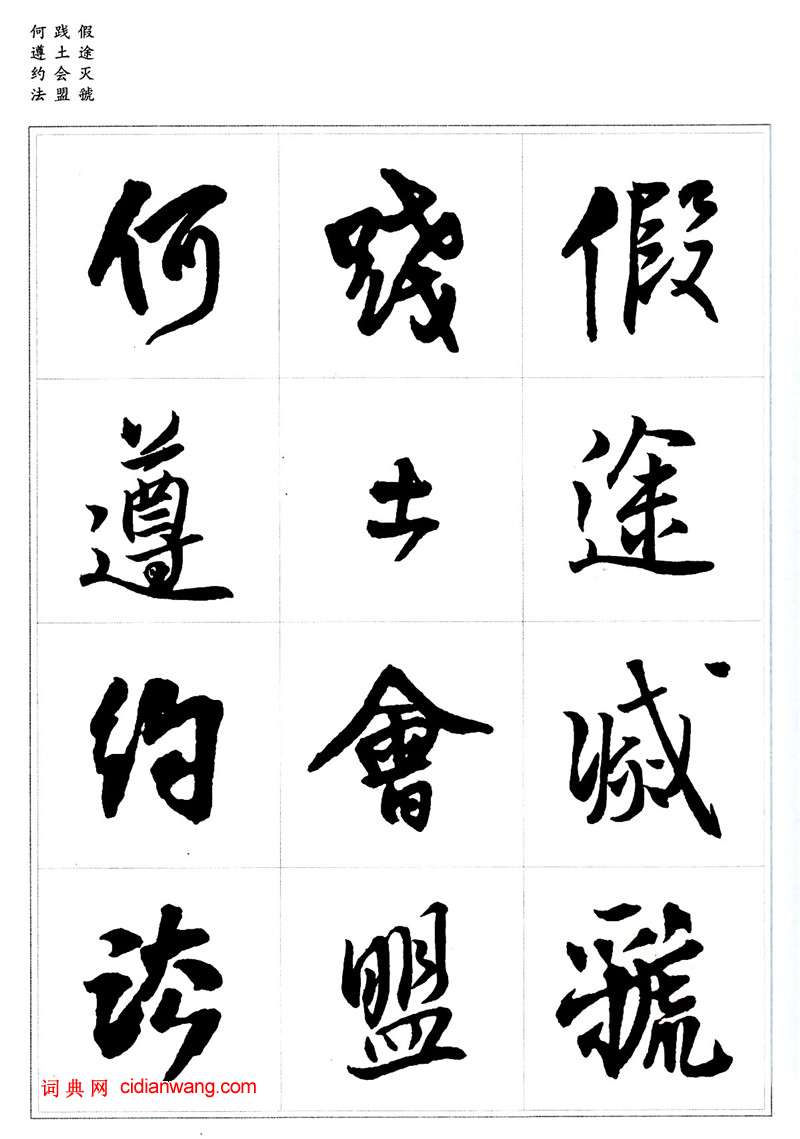 假途灭虢
践土会盟
何遵约法
假途滅虢
踐土會盟
何遵約法
词典网 cidianwang.com